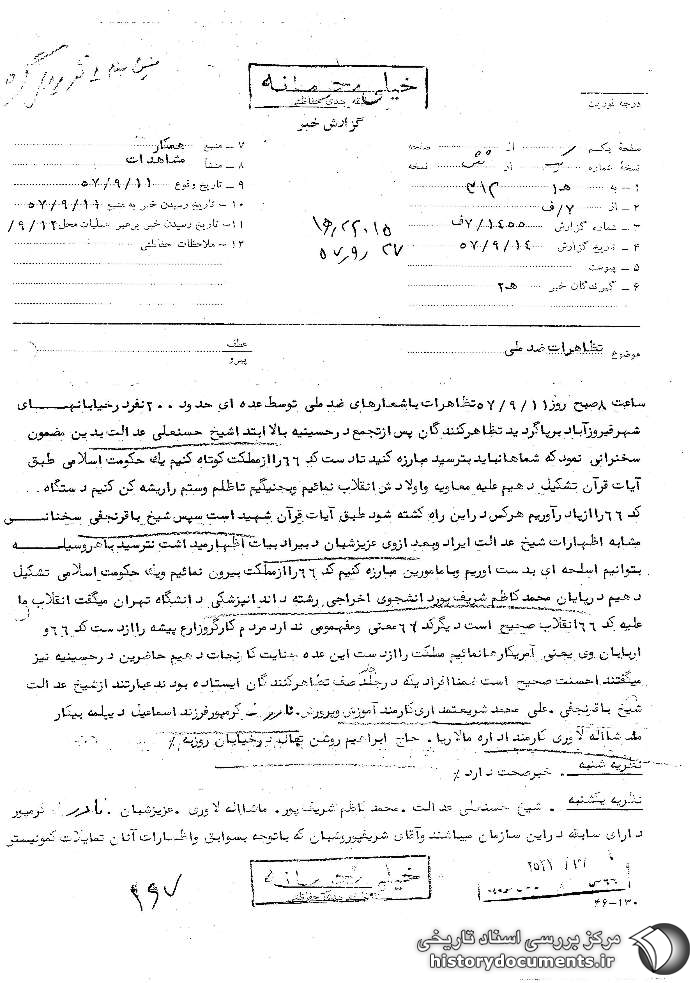 خیلی محرمانه
طبقه بندی حفاظتی
گزارش خبر
درجه فوریت
صفحهٔ یکم از صفحه
نسخهٔ شماره از نسخه
۱ – به ۳۱۲ ه‍ ۱
۲ – از ۷/ف
۳ – شماره گزارش ۷/۱۴۵۵ف
۴ – تاریخ گزارش ۵۷/۹/۱۴
۵ – پیوست
۶ – گیرندگان خبر ۲ه‍
۷ – منبع همکار
۸ – منشأ مشاهدات
۹ – تاریخ وقوع ۵۷/۹/۱۱
۱۰ – تاریخ رسیدن خبر به منبع ۵۷/۹/۱۱
۱۱ – تاریخ رسیدن خبر برهبر عملیات محل ۹/۱۲/
۱۲ – ملاحظات حفاظتی
۵۷،۹،۲۷
موضوع تظاهرات ضد ملی
عطف
پیرو
ساعت ۸ صبح روز ۵۷/۹/۱۱ تظاهرات با شعارهای ضد ملی توسط عده ای حدود ۲۰۰ نفر در خیابانهای
شهر فیروزآباد برپا گردید تظاهرکنندگان پس از تجمع در حسینیه بالا ابتدا شیخ حسنعلی عدالت بدین مضمون
سخنرانی نمود که شماها نباید بترسید مبارزه کنید تا دست کد ۶۶ را از مملکت کوتاه کنیم یک حکومت اسلامی طبق
آیات قرآن تشکیل دهیم علیه معاویه و اولادش انقلاب نمائیم و بجنگیم تا ظلم و ستم را ریشه کن کنیم دستگاه
کد ۶۶ را از پا درآوریم هرکس در این راه کشته شود طبق آیات قرآن شهید است سپس شیخ باقر نجفی سخنانی
مشابه اظهارات شیخ عدالت ایراد و بعد از وی عزیز شبان دبیر ادبیات اظهار میداشت نترسید با هر وسیله
بتوانیم اسلحه ای بدست اوریم و با مامورین مبارزه کنیم کد ۶۶ را از مملکت بیرون نمائیم ویک حکومت اسلامی تشکیل
دهیم در پایان محمد کاظم شریف پور دانشجوی اخراجی رشته دندانپزشکی دانشگاه تهران میگفت انقلاب ما
علیه کد ۶۶ انقلاب صحیح است دیگر کد ۶۶ معنی و مفهومی ندارد مردم کارگر و زارع پیشه را از دست کد ۶۶ و
اربابان وی یعنی آمریکا رها نمائیم مملکت را از دست این عده جنایت کار نجات دهیم حاضرین در حسینیه نیز
میگفتند احسنت صحیح است ضمنا افرادیکه در جلو صف تظاهرکنندگان ایستاده بودند عبارتند از شیخ عدالت
شیخ باقر نجفی . علی محمد شریعتمداری کارمند آموزش و پرورش . نادر کرمپور فرزند اسماعیل دیپلمه بیکار
ماشااله لاوری کارمند اداره مالاریا . حاج ابراهیم روشن نهاد در خیابان روزبه ٪
نظریه شنبه . خبر صحت دارد ٪
نظریه یکشنبه . شیخ حسنعلی عدالت . محمد کاظم شریف پور . ماشااله لاوری . عزیز شبان . نادر کرمپور
دارای سابقه در این سازمان میباشند و آقای شریفپور و شبان که با توجه بسوابق و اظهارات آنان تمایلات کمونیستی
خیلی محرمانه
طبقه بندی حفاظتی
۴۶-۱۳۰
مرکز بررسی اسناد تاریخی
historydocuments.ir